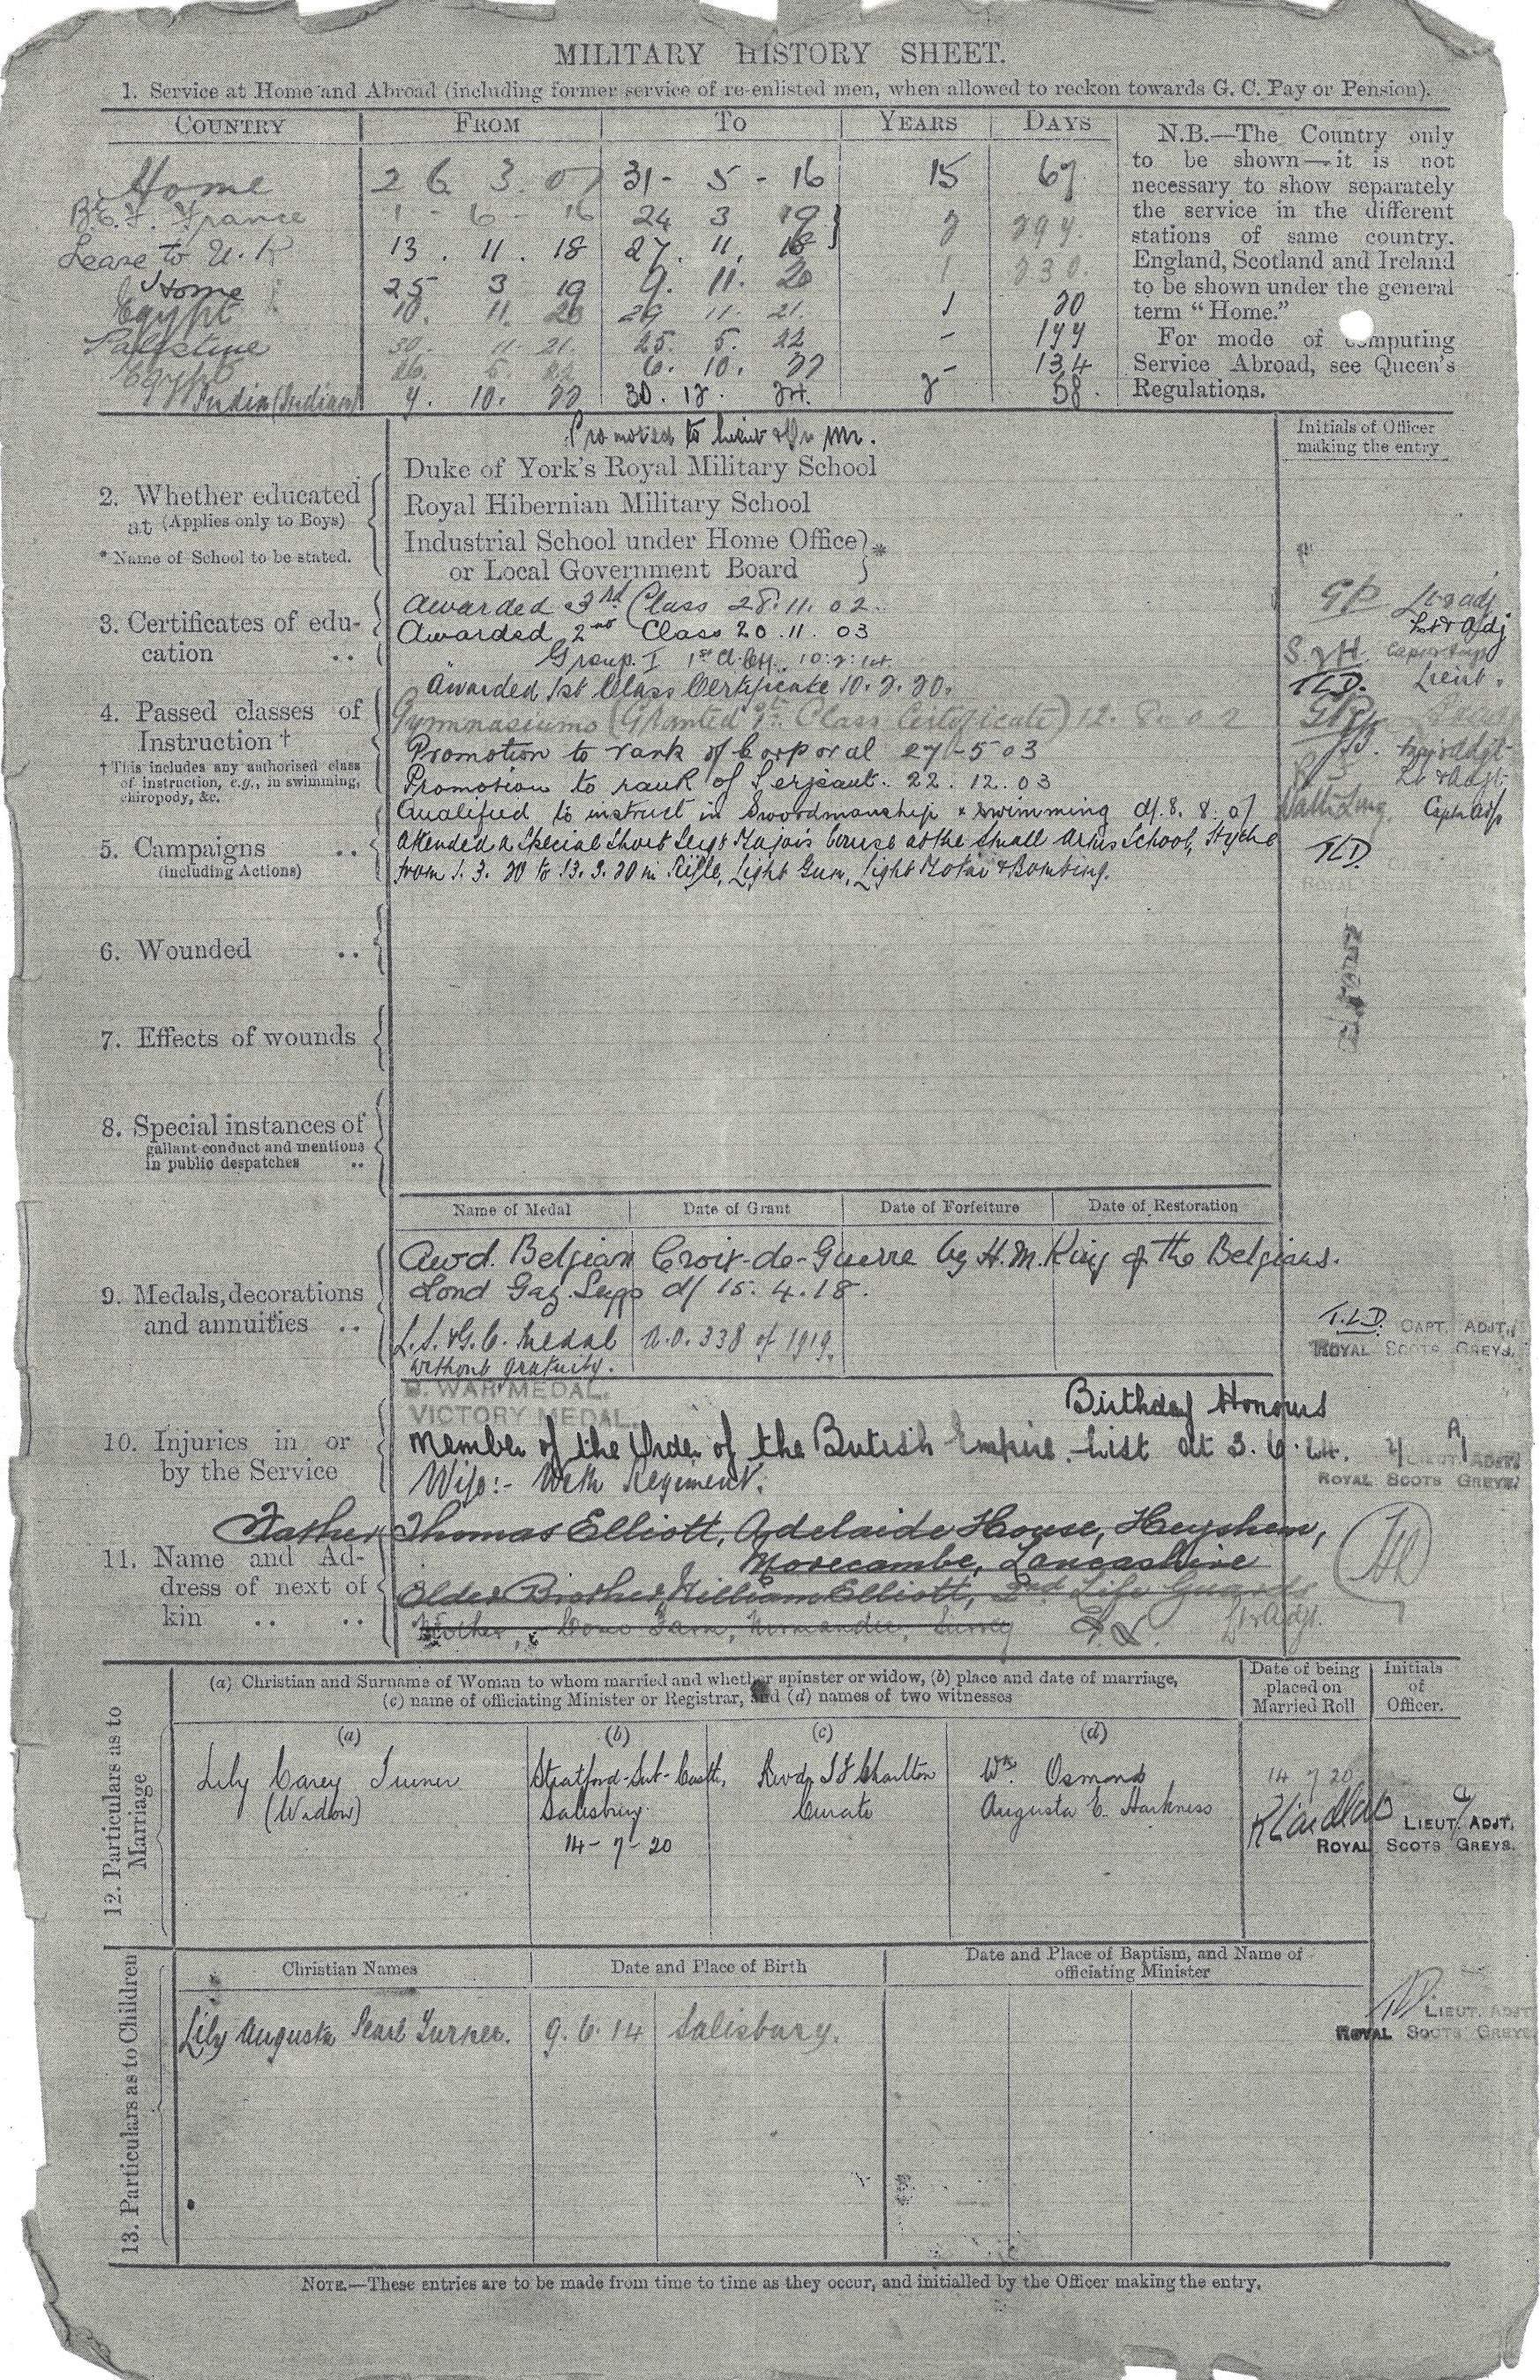 MILITARY HISTORY SHEET.
1. Service at Home and Abroad (including former service of re-enlisted men, when allowed to reckon towards G. C. Pay or Pension).
COUNTRY FROM TO YEARS DAYS
Home 26 3 01 31 - 5 - 16 15 67
B.E.F. France 1 - 6 - 16 24 3 19 } 2 297
Leave to U.K 13 . 11 . 18 27 . 11 . 18
Home 25 3 19 9. 11. 20 1 230
Egypt 10. 11. 20 29 11. 21. 1 20
Palestine 30. 11. 21. 25. 5. 22 - 177
Egypt 26. 5. 22 6. 10. 22 - 134
India (Indian) 7. 10. 22 30. 12. 24. 2 58.
N.B.—The Country only
to be shown—it is not
necessary to show separately
the service in the different
stations of same country.
England, Scotland and Ireland
to be shown under the general
term “Home.”
For mode of computing
Service Abroad, see Queen's
Regulations.
Promoted to Lieut & Qr Mr.
Initials of Officer
making the entry
2. Whether educated
at (Applies only to Boys)
* Name of School to be stated.
Duke of York's Royal Military School
Royal Hibernian Military School
Industrial School under Home Office } *
or Local Government Board
3. Certificates of edu-
cation ..
Awarded 3rd Class 28.11.02.
Awarded 2nd Class 20.11.03
Group. I 1st
Awarded 1st Class Certificate 10.2.20.
Lt & Adj
TLD. Lieut.
4. Passed classes of
Instruction †
† This includes any authorised class
of instruction, e.g., in swimming,
chiropody, &c.
Gymnasiums (Granted 1st Class Certificate) 12.8.02
Promotion to rank of Corporal 27-5 03
Promotion to rank of Serjeant. 22. 12. 03
Qualified to instruct in Swordmanship & swimming d/. 8. 8. 07
5. Campaigns ..
(including Actions)
Attended a Special Short Sergt Majors Course at the Small Arms School, Hythe
from 1. 3. 20 to 13. 3. 20 in Rifle, Light Gun, Light Motar & Bombing.
TLD
6. Wounded ..
7. Effects of wounds
8. Special instances of
gallant conduct and mentions
in public despatches ..
Name of Medal Date of Grant Date of Forfeiture Date of Restoration
9. Medals, decorations
and annuities ..
Awd. Belgian Croix-de-Guerre by H.M. King of the Belgians.
Lond Gaz. Supp d/ 15. 4. 18.
L.S. & G.C. Medal A.O. 338 of 1919.
without gratuity.
T.L.D. CAPT. ADJT.,
ROYAL SCOTS GREYS.
B. WAR MEDAL.
VICTORY MEDAL.
10. Injuries in or
by the Service
Birthday Honours
Member of the Order of the British Empire. List dt 3. 6. 24.
LIEUT. ADJT.
ROYAL SCOTS GREYS.
Wife:- With Regiment.
11. Name and Ad-
dress of next of
kin .. ..
Father, Thomas Elliott, Adelaide House, Heysham,
Morecambe, Lancashire
Older Brother, William Elliott, 2nd Life Guards
Mother, Farm, Normandie, Surrey
Lt & Adjt.
12. Particulars as to
Marriage
(a) Christian and Surname of Woman to whom married and whether spinster or widow, (b) place and date of marriage,
(c) name of officiating Minister or Registrar, and (d) names of two witnesses
Date of being
placed on
Married Roll
Initials
of
Officer.
(a) (b) (c) (d)
Lily Carey Turner Stratford-Sub-Castle, Revd Charlton Wm. Osmond 14 7 20
(Widow) Salisbury. Curate Augusta E. Harkness
14 - 7 - 20
LIEUT. ADJT.
ROYAL SCOTS GREYS.
13. Particulars as to Children
Christian Names Date and Place of Birth Date and Place of Baptism, and Name of
officiating Minister
Lily Augusta Pearl Turner. 9. 6. 14 Salisbury.
LIEUT. ADJT
ROYAL SCOTS GREYS
NOTE.—These entries are to be made from time to time as they occur, and initialled by the Officer making the entry.